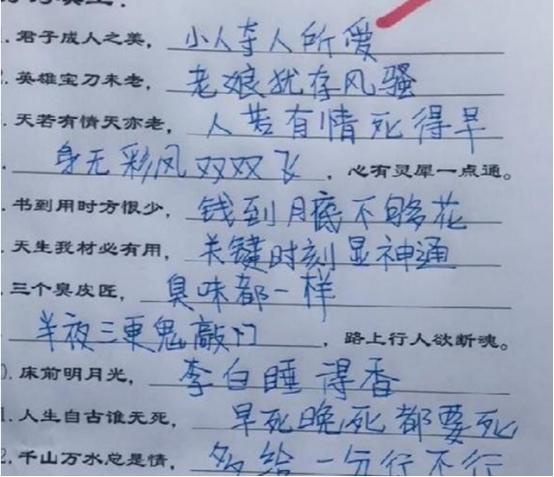 . 君子成人之美， 小人夺人所爱
. 英雄宝刀未老， 老娘犹存风骚
. 天若有情天亦老， 人若有情死得早
. 身无彩风双双飞 ，心有灵犀一点通。
. 书到用时方恨少， 钱到月底不够花
. 天生我材必有用， 关键时刻显神通
. 三个臭皮匠， 臭味都一样
半夜三更鬼敲门 ，路上行人欲断魂。
0. 床前明月光， 李白睡得香
1. 人生自古谁无死， 早死晚死都要死
2. 千山万水总是情， 多给一分行不行